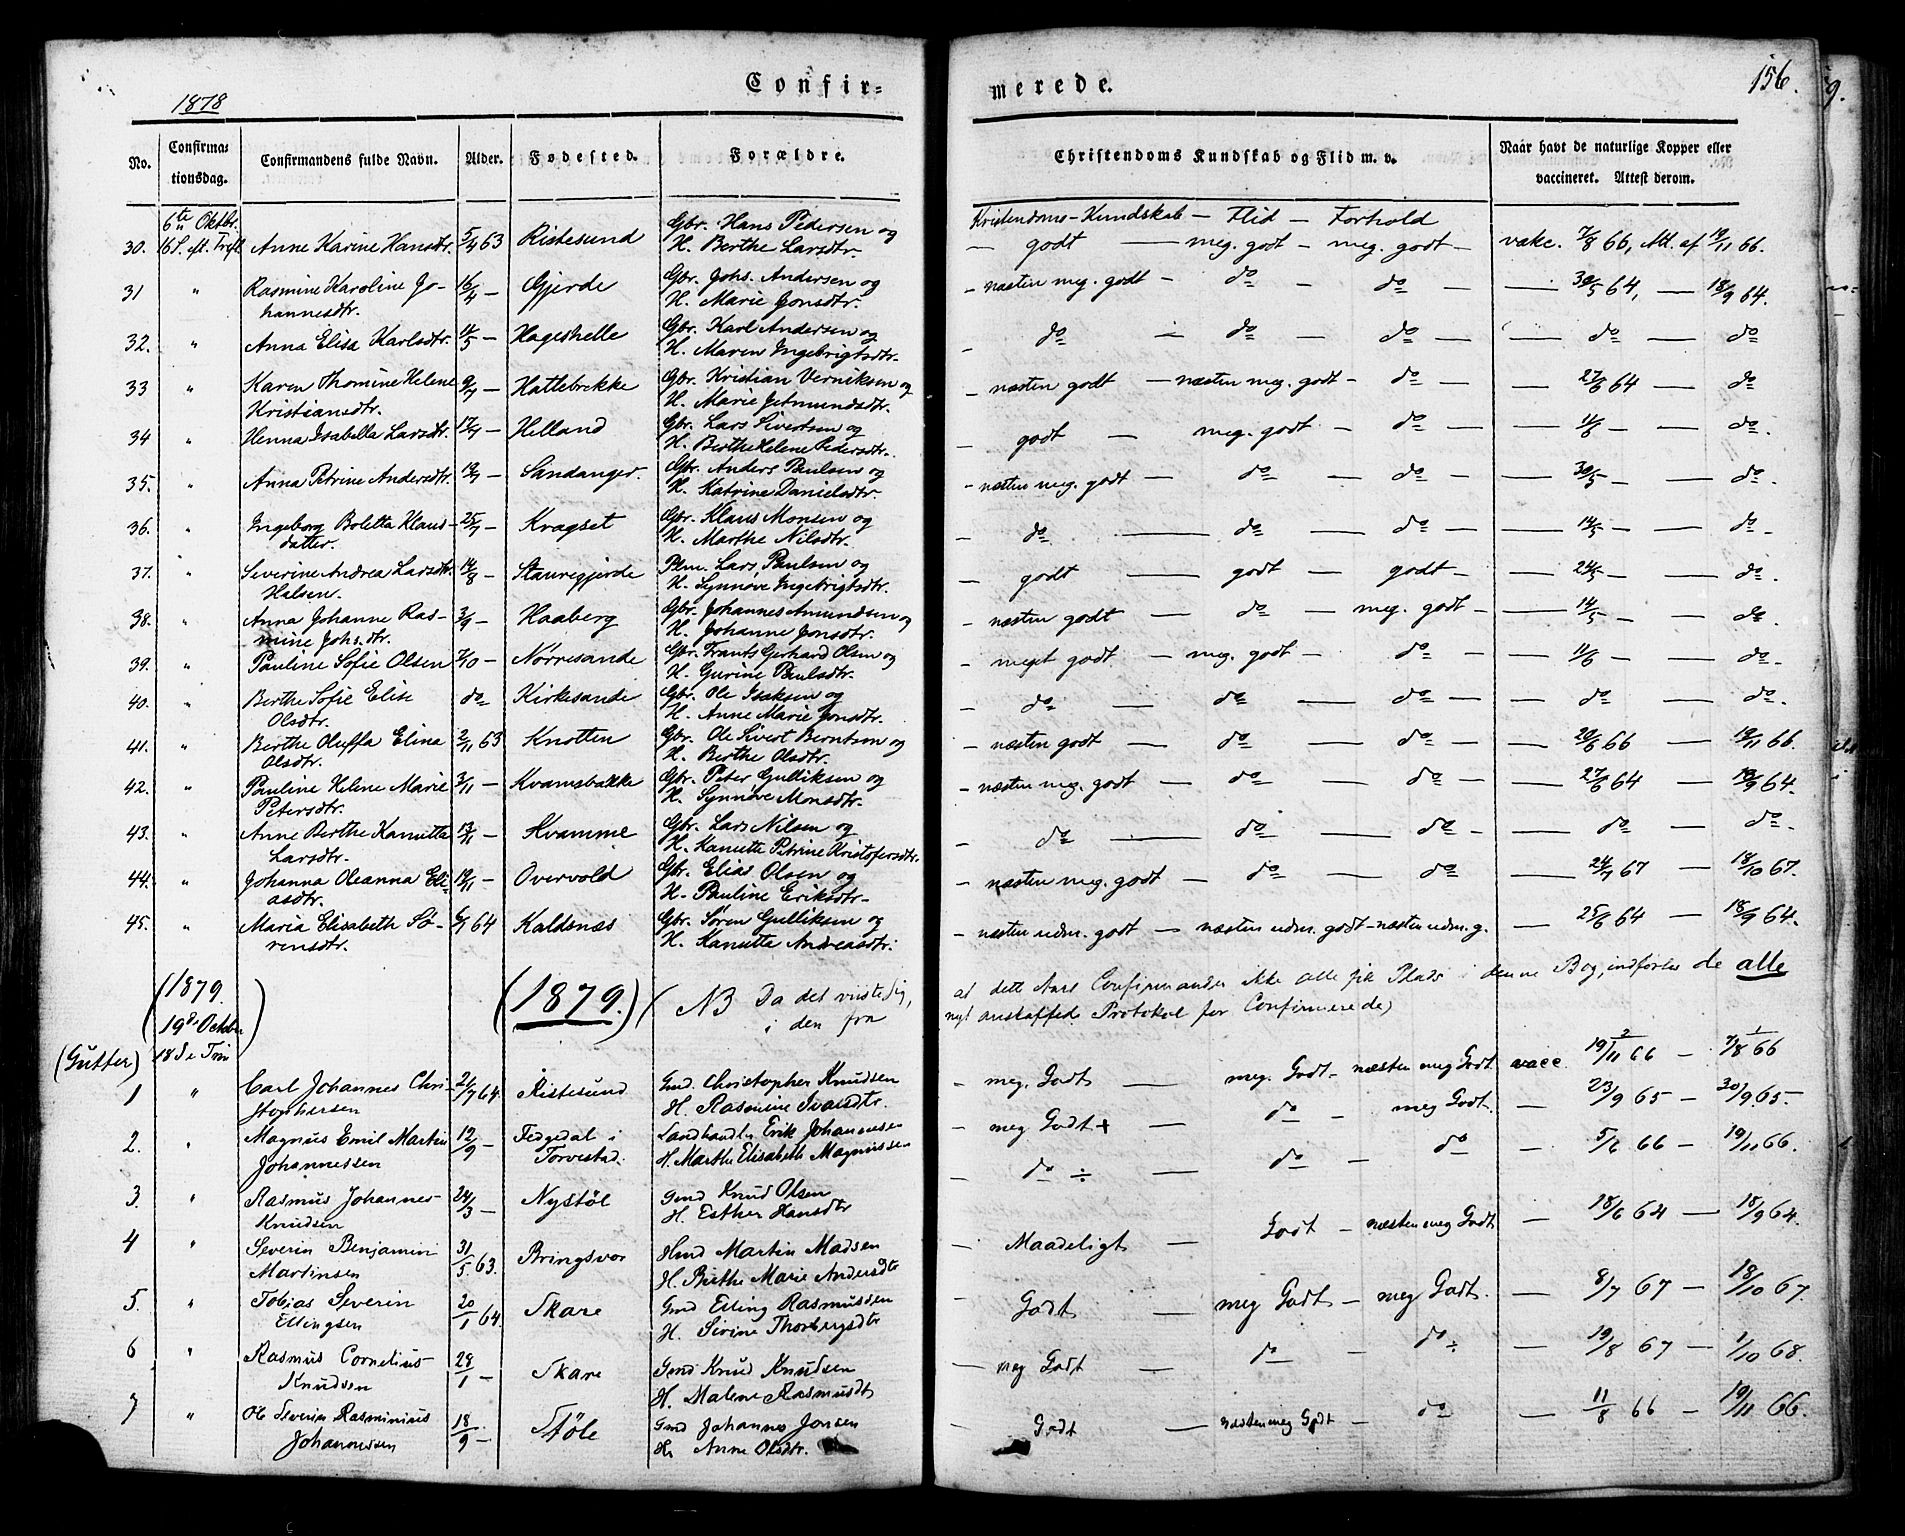 Confir-
merede.
156.
1878
No. Confirma-tionsdag. Confirmandens fulde Navn. Alder. Fødested. Forældre. Christendoms Kundskab og Flid m. v. Naar havt de naturlige Kopper eller vaccineret. Attest derom.
6te Oktbr. Kristendoms-Kundskab — Flid — Forhold
30. 16 S. eft. Tref. Anne Karine Hansdtr. 5/4 63 Ristesund Gbr. Hans Pedersen og H. Berthe Larsdtr. — godt — meg. godt — meg. godt — vakc. 7/8 66, Att. af 19/11 66.
31 " Rasmine Karoline Jo-hannesdtr. 16/4 — Gjerde Gbr. Johs. Andersen og H. Marie Jonsdtr. — næsten meg. godt — do — do — 30/5 64, — 18/9 64.
32. " Anna Elisa Karlsdtr. 14/5 — Hageskelle Gbr. Karl Andersen og H. Maren Ingebrigtsdtr. — do — do — do — do — do
33 " Karen Thomine Helene Kristiansdtr. 9/7 — Hattebrekke Gbr. Kristian Verniksen og H. Marie Jetmundsdtr. — næsten godt — næsten meg. godt — do — 27/6 64 — do
34 " Henna Isabella Larsdtr. 17/7 — Helland Gbr. Lars Sivertsen og H. Berthe Helene Pedersdtr. — godt — meg. godt — do — 11/6 — do.
35. " Anna Petrine Andersdtr. 19/7 — Sandanger. Gbr. Anders Paulsen og H. Katrine Danielsdtr. — næsten meg. godt — do — do — 30/5 — do.
36. " Ingeborg Boletta Klaus-datter. 25/7 — Kragset Gbr. Klaus Monsen og H. Marthe Nilsdtr. — do — do — do — 14/5 — do
37. " Severine Andrea Larsdtr. Halsen. 14/8 — Stauregjerde Plm. Lars Paulsen og H. Synnøve Ingebrigtsdtr. — godt — godt — godt — 24/5 — do.
38. " Anna Johanne Ras-mine Johs.dtr. 3/9 — Haaberg Gbr. Johannes Amundsen og H. Johanne Jonsdtr. — næsten godt — do — meg. godt — 14/5 — do.
39. " Pauline Sofie Olsen 7/10 — Nørresande Gbr. Frants Gerhard Olsen og H. Gurine Paulsdtr. — meget godt — meg. godt — do — 11/6 — do.
40. " Berthe Sofie Elise Olsdtr. do Kirkesande Gbr. Ole Isaksen og H. Anne Marie Jonsdtr. — do — do — do — do — do.
41. " Berthe Oluffa Elina Olsdtr. 2/11 63 Knotten Gbr. Ole Sivert Berntsen og H. Berthe Olsdtr. — næsten godt — do — do — 20/6 66 — 19/11 66.
42. " Pauline Helene Marie Petersdtr. 3/11 — Kvamsbakke Gbr. Peter Gulliksen og H. Synnøve Monsdtr. — næsten meg. godt — do — do — 27/6 64 — 18/9 64.
43. " Anne Berthe Kanutta Larsdtr. 13/11 — Kvamme Gbr. Lars Nilsen og H. Kanutte Petrine Kristofersdtr. — do — do — do — do — do.
44. " Johanna Oleanna Eli-asdtr. 19/11 — Overvold Gbr. Elias Olsen og H. Pauline Eriksdtr. — næsten meg. godt — do — do — 24/7 67 — 18/10 67.
45. " Maria Elisabeth Sø-rensdtr. 64 Kaldsnæs Gbr. Søren Gulliksen og H. Kanutta Andreasdtr. — næsten udm. godt — næsten udm. godt — næsten udm. g. — 25/6 64 — 18/9 64.
(1879. (1879.) (NB Da det viste sig, at dette Aars Confirmander ikke alle fik Plads i denne Bog, indføres de alle
19de Octbr) i den fra nyt anskaffede Protokol for Confirmerede)
(Gutter) 18 S e Trin
1 " Carl Johannes Chri-stophersen 2/7 64. Ristesund Gmd. Christopher Knudsen H. Rasmine Ivarsdtr. — meg. Godt — meg. Godt — næsten meg Godt vacc. 19/11 66 — 7/8 66
2. " Magnus Emil Martin Johannessen 12/9 — Fedgedal i Torvestad. Landhandler Erik Johannesen H. Marthe Elisabeth Magnussen — meg Godt + — do — meg Godt. — 23/9 65 — 30/9 65.
3. " Rasmus Johannes Knudsen 24/3 — Nystøl Gmd Knud Olsen H. Esther Hansdtr — do ÷ — do — do — 5/6 66 — 19/11 66.
4 " Severin Benjamin Martinsen 31/5 63. Bringsvor Hmd Martin Madsen H. Birthe Marie Andersdtr — Maadeligt — Godt — næsten meg Godt — 18/6 64 — 18/9 64.
5. " Tobias Severin Ellingsen 20/1 64. Skare Gmd Elling Rasmussen H. Sirine Thorbergsdtr — Godt — meg Godt — meg Godt. — 8/7 67 — 18/10 67.
6 " Rasmus Cornelius Knudsen 28/1 — Skare Gmd Knud Knudsen H. Malene Rasmusdt — meg Godt — do — do ÷ — 19/8 67 — 1/10 68.
7 " Ole Severin Rasminius Johannesen 18/9 — Støle Gmd Johannes Jonsen H. Anne Olsdtr. — Godt — næsten meg Godt — do — 11/8 66 — 19/11 66.